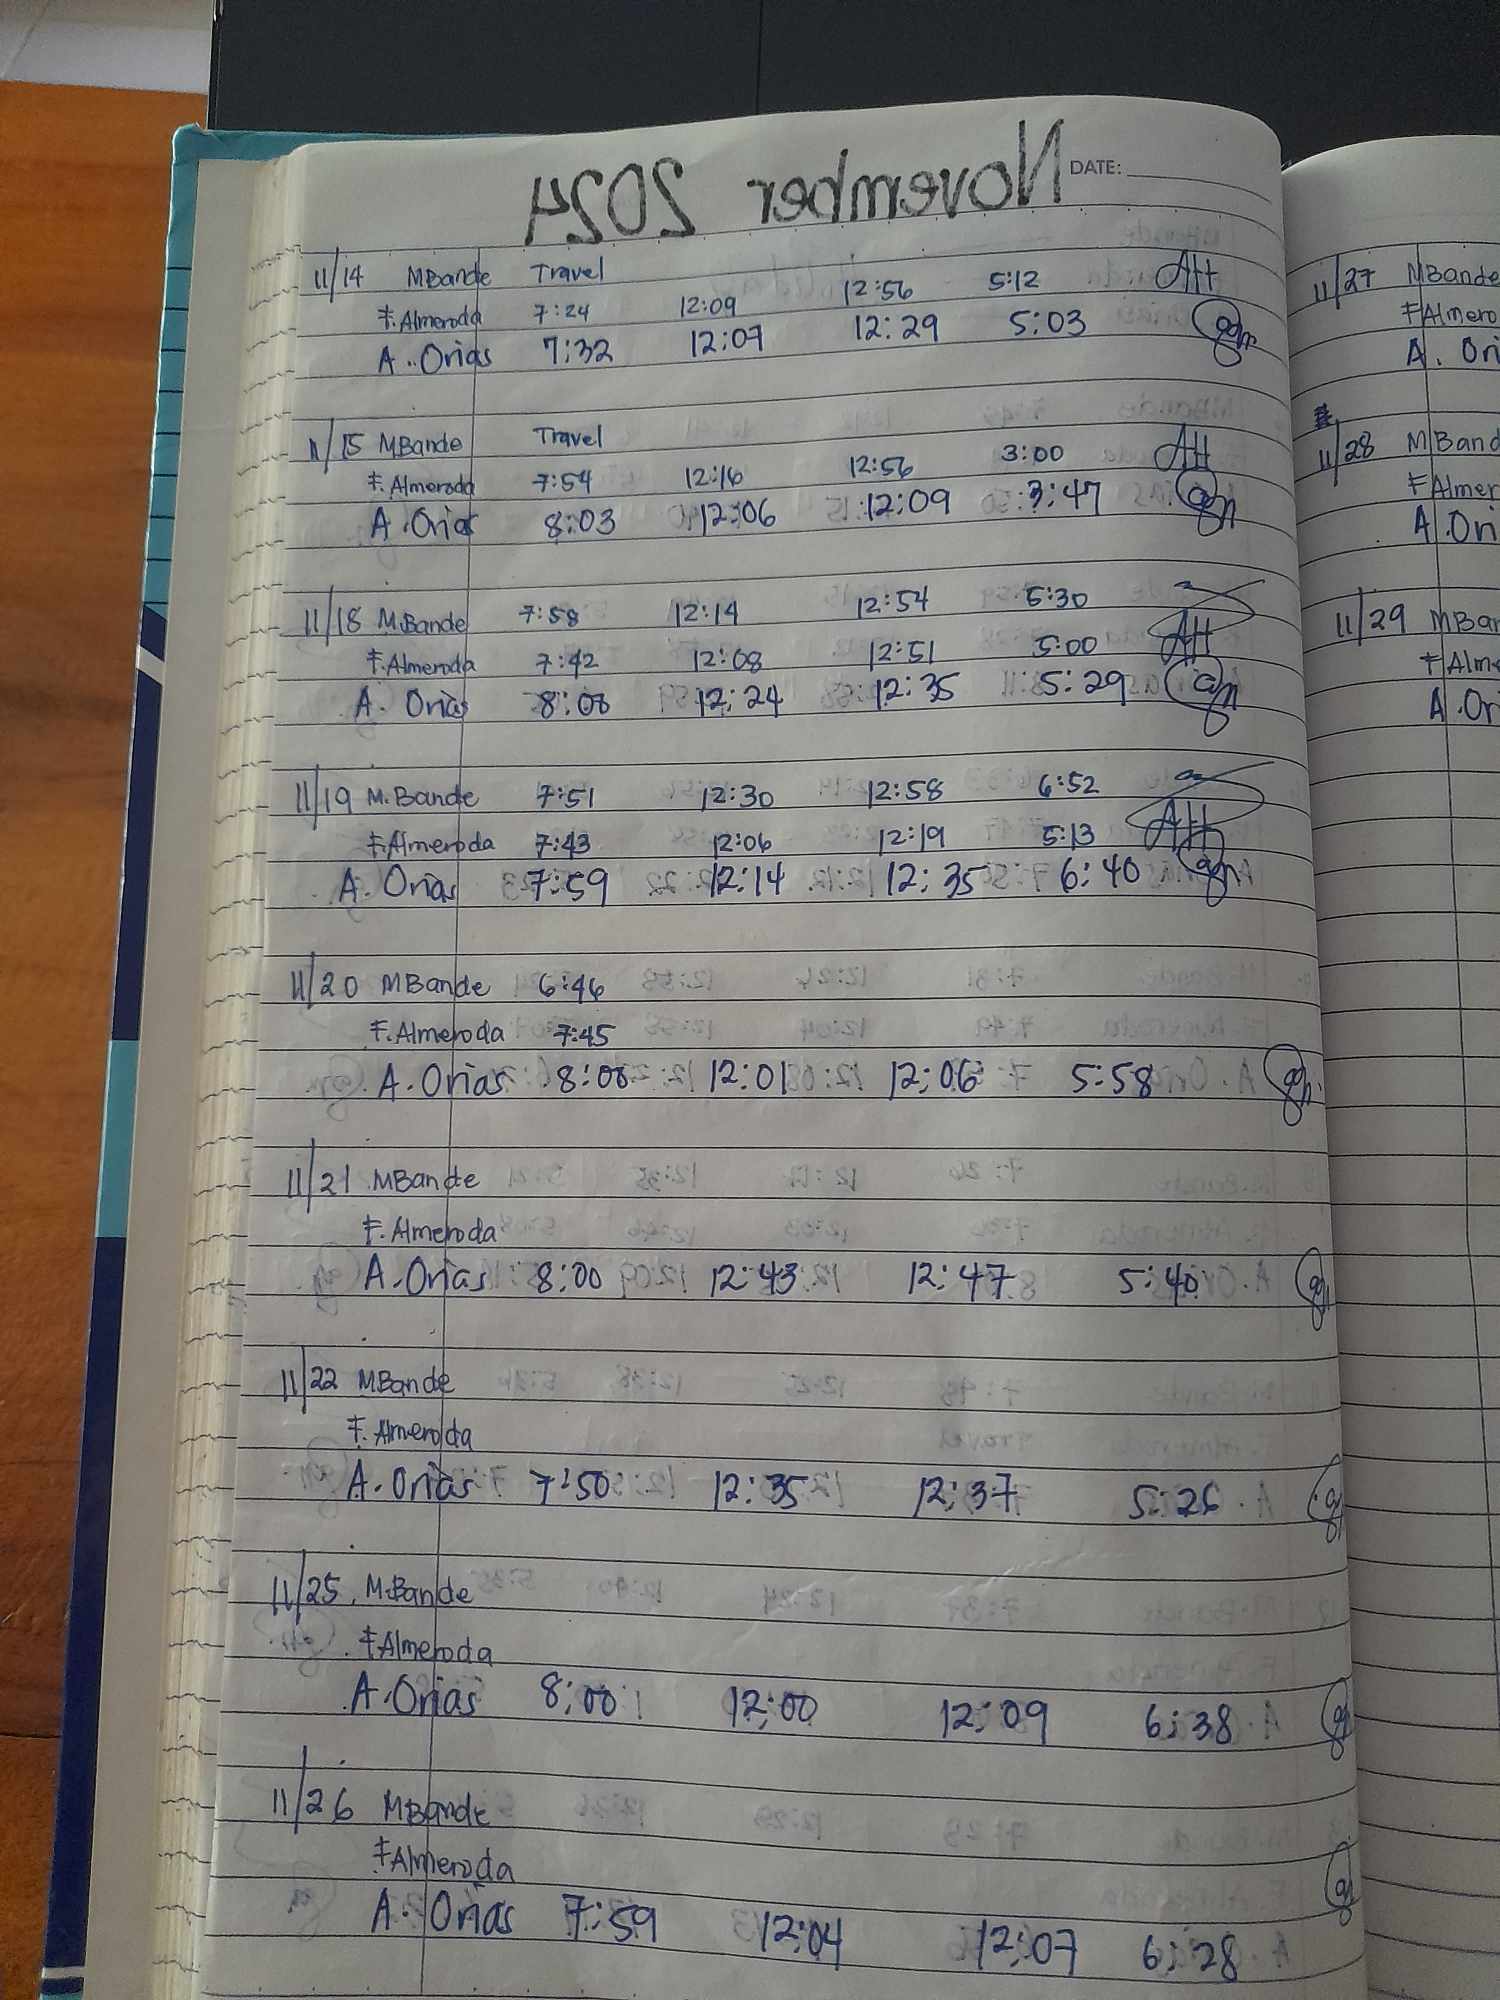 DATE:
November 2024
11/14 MBande Travel
F. Almeroda 7:24 12:09 12:56 5:12
A. Orias 7:32 12:07 12:29 5:03
11/15 MBande Travel
F. Almeroda 7:54 12:16 12:56 3:00
A. Orias 8:03 12:06 12:09 3:47
11/18 M.Bande 7:58 12:14 12:54 5:30
F. Almeroda 7:42 12:08 12:51 5:00
A. Orias 8:00 12:24 12:35 5:29
11/19 M.Bande 7:51 12:30 12:58 6:52
F. Almeroda 7:43 12:06 12:19 5:13
A. Orias 7:59 12:14 12:35 6:40
11/20 MBande 6:46
F. Almeroda 7:45
A. Orias 8:00 12:01 12:06 5:58
11/21 MBande
F. Almeroda
A. Orias 8:00 12:43 12:47 5:40
11/22 MBande
F. Almeroda
A. Orias 7:50 12:35 12:37 5:26
11/25 M.Bande
F Almeroda
A. Orias 8:00 12:00 12:09 6:38
11/26 MBande
F Almeroda
A. Orias 7:59 12:04 12:07 6:28
11/27 MBande
F Almero
A. Ori
11/28 MBand
F Almer
A. Ori
11/29 MBan
F Alme
A. Or